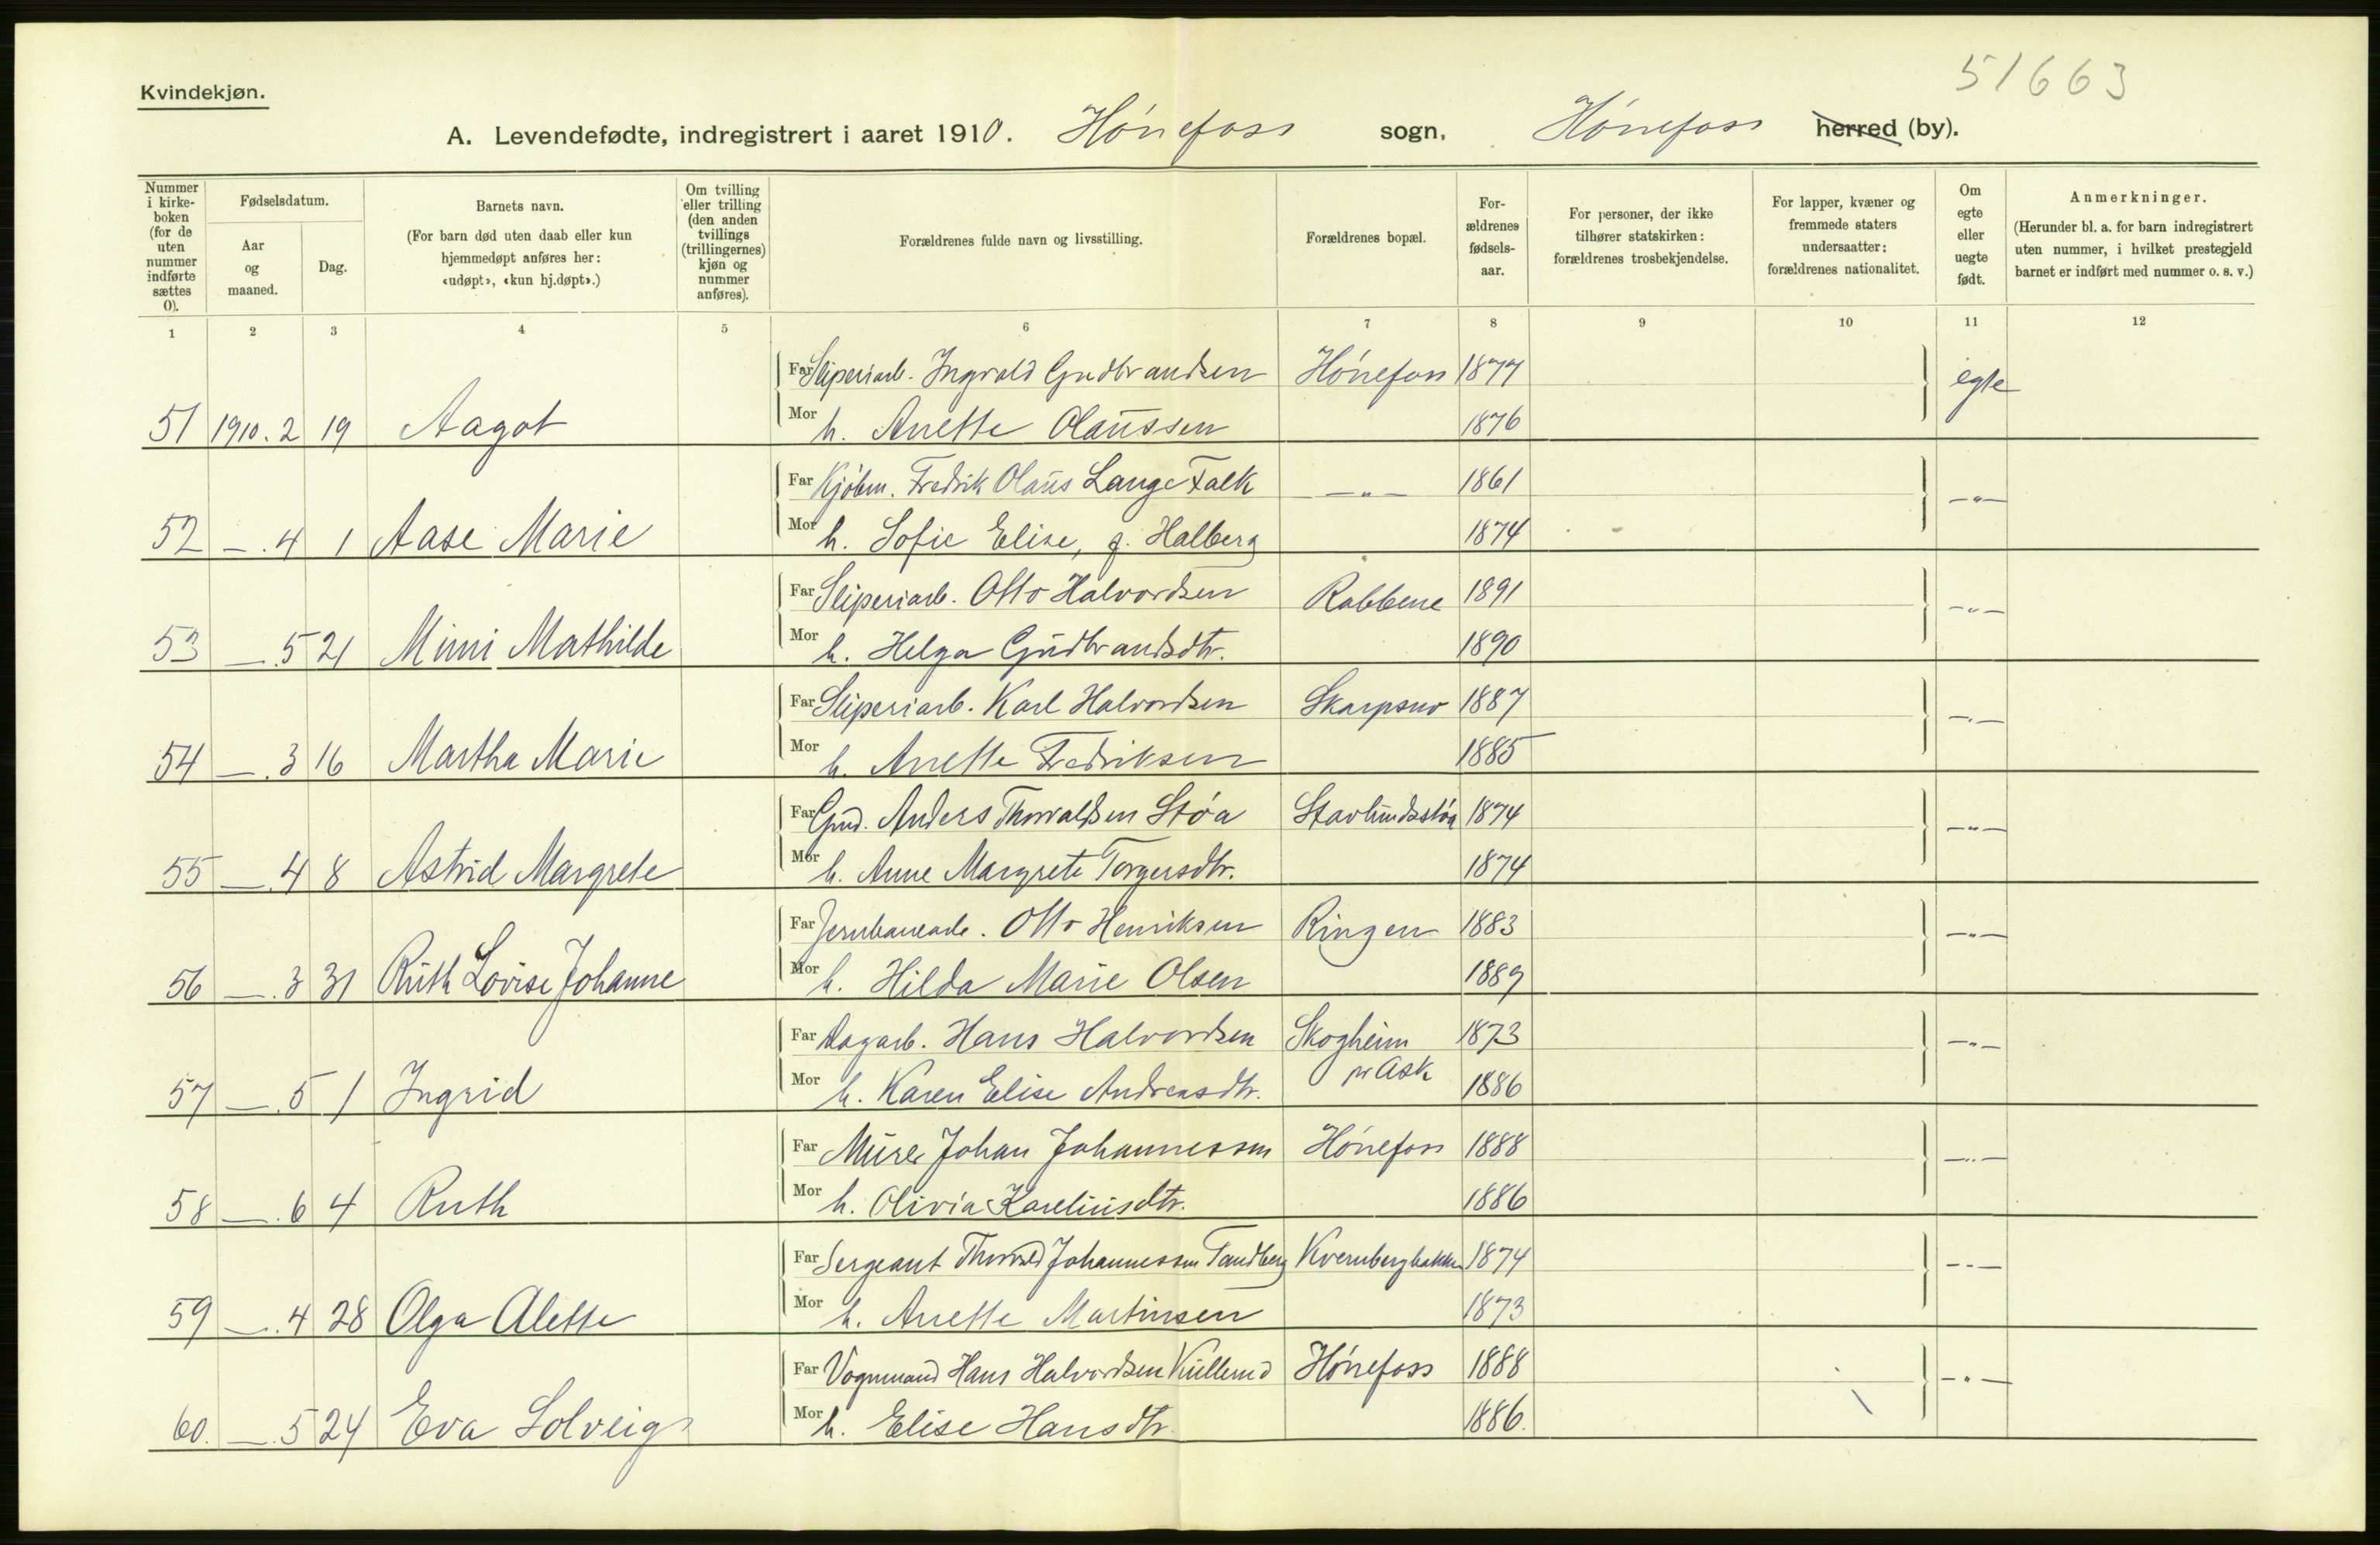 51663
Kvindekjøn.
A. Levendefødte, indregistrert i aaret 1910. Hønefoss sogn, Hønefoss herred (by).
Nummer i kirke-boken (for de uten nummer indførte sættes 0).
Fødselsdatum.
Aar og maaned.
Dag.
Barnets navn.
(For barn død uten daab eller kun hjemmedøpt anføres her: «udøpt», «kun hj.døpt».)
Om tvilling eller trilling (den anden tvillings (trillingernes) kjøn og nummer anføres).
Forældrenes fulde navn og livsstilling.
Forældrenes bopæl.
For-ældrenes fødsels-aar.
For personer, der ikke tilhører statskirken: forældrenes trosbekjendelse.
For lapper, kvæner og fremmede staters undersaatter: forældrenes nationalitet.
Om egte eller uegte født.
Anmerkninger.
(Herunder bl. a. for barn indregistrert uten nummer, i hvilket prestegjeld barnet er indført med nummer o. s. v.)
1 2 3 4 5 6 7 8 9 10 11 12
Far Sliperiarb. Ingvald Gudbrandsen Hønefoss 1877 egte
51 1910. 2 19 Aagot Mor h. Anette Olaussen 1876
Far Kjøbm. Fredrik Olaus Lange Falk —"— 1861 —"—
52 —. 4 1 Aase Marie Mor h. Sofie Elise, g. Halberg 1874
Far Sliperiarb. Otto Halvordsen Rabbene 1891 —"—
53 —. 5 21 Mimi Mathilde Mor h. Helga Gudbrandsdtr. 1890
Far Sliperiarb. Karl Halvordsen Skarpsno 1887 —"—
54 —. 3 16 Martha Marie Mor h. Anette Fredriksen 1885
Far Grd. Anders Thorvaldsen Støa Stavlundsstøa 1874 —"—
55 —. 4 8 Astrid Margrete Mor h. Anne Margrete Torgersdtr. 1874
Far Jernbanearb. Otto Henriksen Ringen 1883 —"—
56 —. 3 31 Ruth Lovise Johanne Mor h. Hilda Marie Olsen 1889
Far Dagarb. Hans Halvordsen Skogheim 1873 —"—
pr Ask
57 —. 5 1 Ingrid Mor h. Karen Elise Andreasdtr. 1886
Far Murer Johan Johannessen Hønefoss 1888 —"—
58 —. 6 4 Ruth Mor h. Olivia Kareliusdtr. 1886
Far Sergeant Thorvald Johannessen Tandberg Kvernbergbakken 1874 —"—
59 —. 4 28 Olga Alette Mor h. Anette Martinsen 1873
Far Vognmand Hans Halvordsen Kullerud Hønefoss 1888 —"—
60. —. 5 24 Eva Solveig Mor h. Elise Hansdtr. 1886.